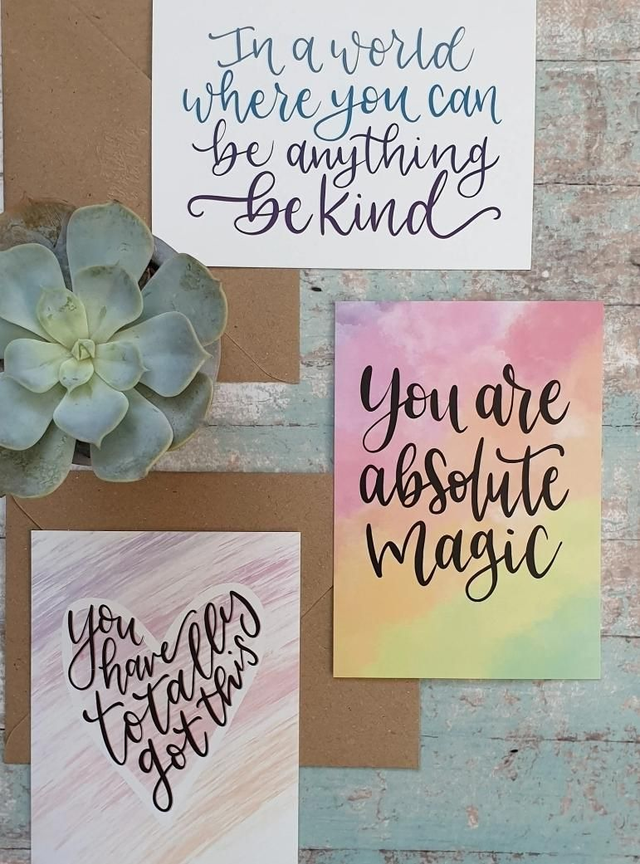 In a world
where you can
be anything
be kind
You are
absolute
magic
You
have
totally
got this